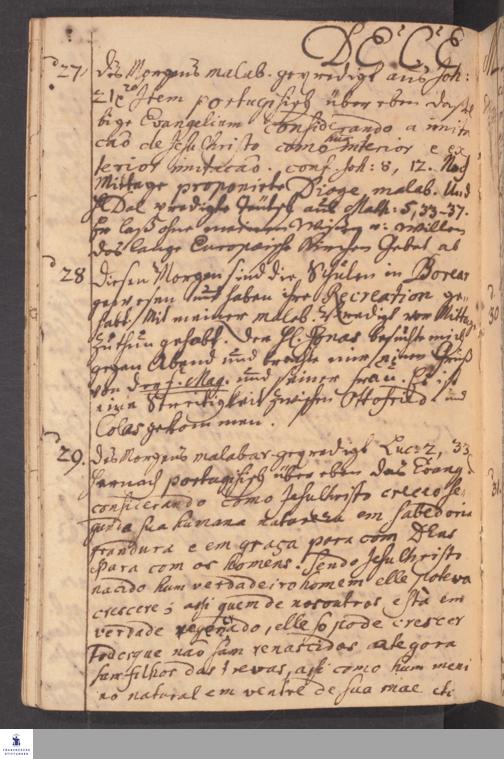 DECE
27. Des Morgens malab. geprediget aus Joh:
21, 20 Item portugisisch über eben dassel
bige Evangelium Considerando a imita
caõ de Jesu Christo como hua interior e ex
terior imitacaõ. conf. Joh: 8, 12. Nach
Mittage proponirte Diogo, malab. Und
H Dal predigte Teutsch aus Math: 5, 33-37.
Er lass ohne meinem Wissen u: willen
das lange Europaische Kirchen Gebet ab
28 Diesen Morgen sind die Schulen in Borear
gewesen und haben ihre Recreation ge-
habt. Mit meiner malab. Predigt vor Mittag
zu thun gehabt. Der H. Jonas besuchte mich
gegen Abend und brachte mir einen Gruß
von der g. f. Mag. und seiner Frau. Es ist
eine Streitigkeit zwischen Ottofried und
Colas gekommen.
29. Des Morgens malabar. geprediget Luc: 2, 33
hernach portugisisch über eben das Evang.
considerando como Jesu Christo creceo se-
gundo sua humana natureza em sabedoria
grandura e em graça para com Deus
e para com os homens. Sendo Jesu Christo
nacido hum verdadeiro homem elle poteva
crescere; assi quem de nosoutros està em
verdade regenado, elle so pode crescer
Todesque naõ sam renascidos atègora
sam filhos das trevas, assi como hum meni
no natural em ventre de sua mae eti
FRANCKESCHE
STIFTUNGEN